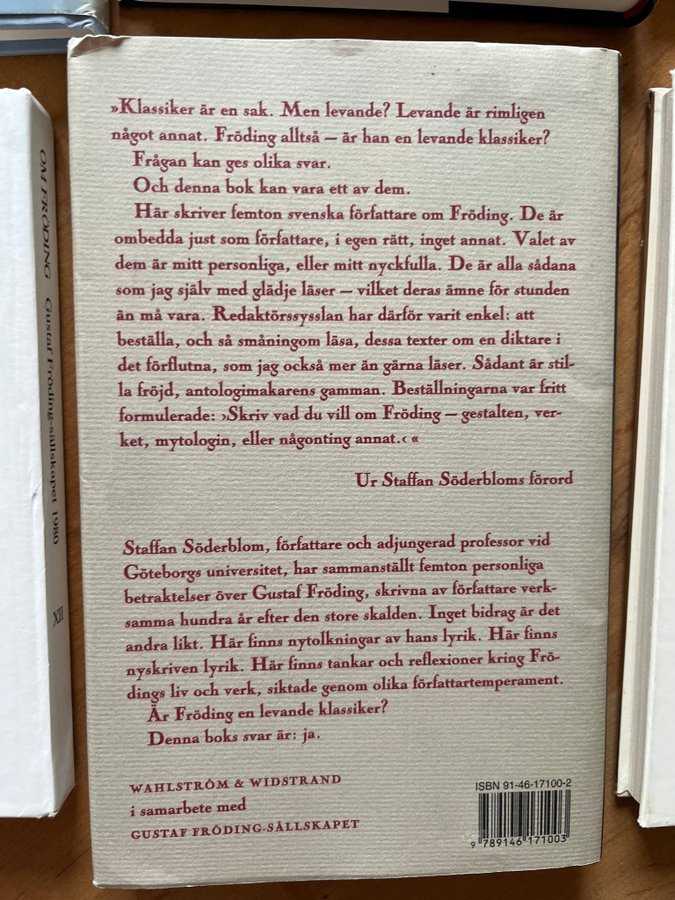 »Klassiker är en sak. Men levande? Levande är rimligen
något annat. Fröding alltså – är han en levande klassiker?
Frågan kan ges olika svar.
Och denna bok kan vara ett av dem.
Här skriver femton svenska författare om Fröding. De är
ombedda just som författare, i egen rätt, inget annat. Valet av
dem är mitt personliga, eller mitt nyckfulla. De är alla sådana
som jag själv med glädje läser – vilket deras ämne för stunden
än må vara. Redaktörssysslan har därför varit enkel: att
beställa, och så småningom läsa, dessa texter om en diktare i
det förflutna, som jag också mer än gärna läser. Sådant är stil-
la fröjd, antologimakarens gamman. Beställningarna var fritt
formulerade: ›Skriv vad du vill om Fröding – gestalten, ver-
ket, mytologin, eller någonting annat.‹ «
Ur Staffan Söderbloms förord
Staffan Söderblom, författare och adjungerad professor vid
Göteborgs universitet, har sammanställt femton personliga
betraktelser över Gustaf Fröding, skrivna av författare verk-
samma hundra år efter den store skalden. Inget bidrag är det
andra likt. Här finns nytolkningar av hans lyrik. Här finns
nyskriven lyrik. Här finns tankar och reflexioner kring Frö-
dings liv och verk, siktade genom olika författartemperament.
Är Fröding en levande klassiker?
Denna boks svar är: ja.
WAHLSTRÖM & WIDSTRAND
i samarbete med
GUSTAF FRÖDING-SÄLLSKAPET
ISBN 91-46-17100-2
9 789146 171003
OM FRÖDING Gustaf Fröding-sällskapet 1980 XII